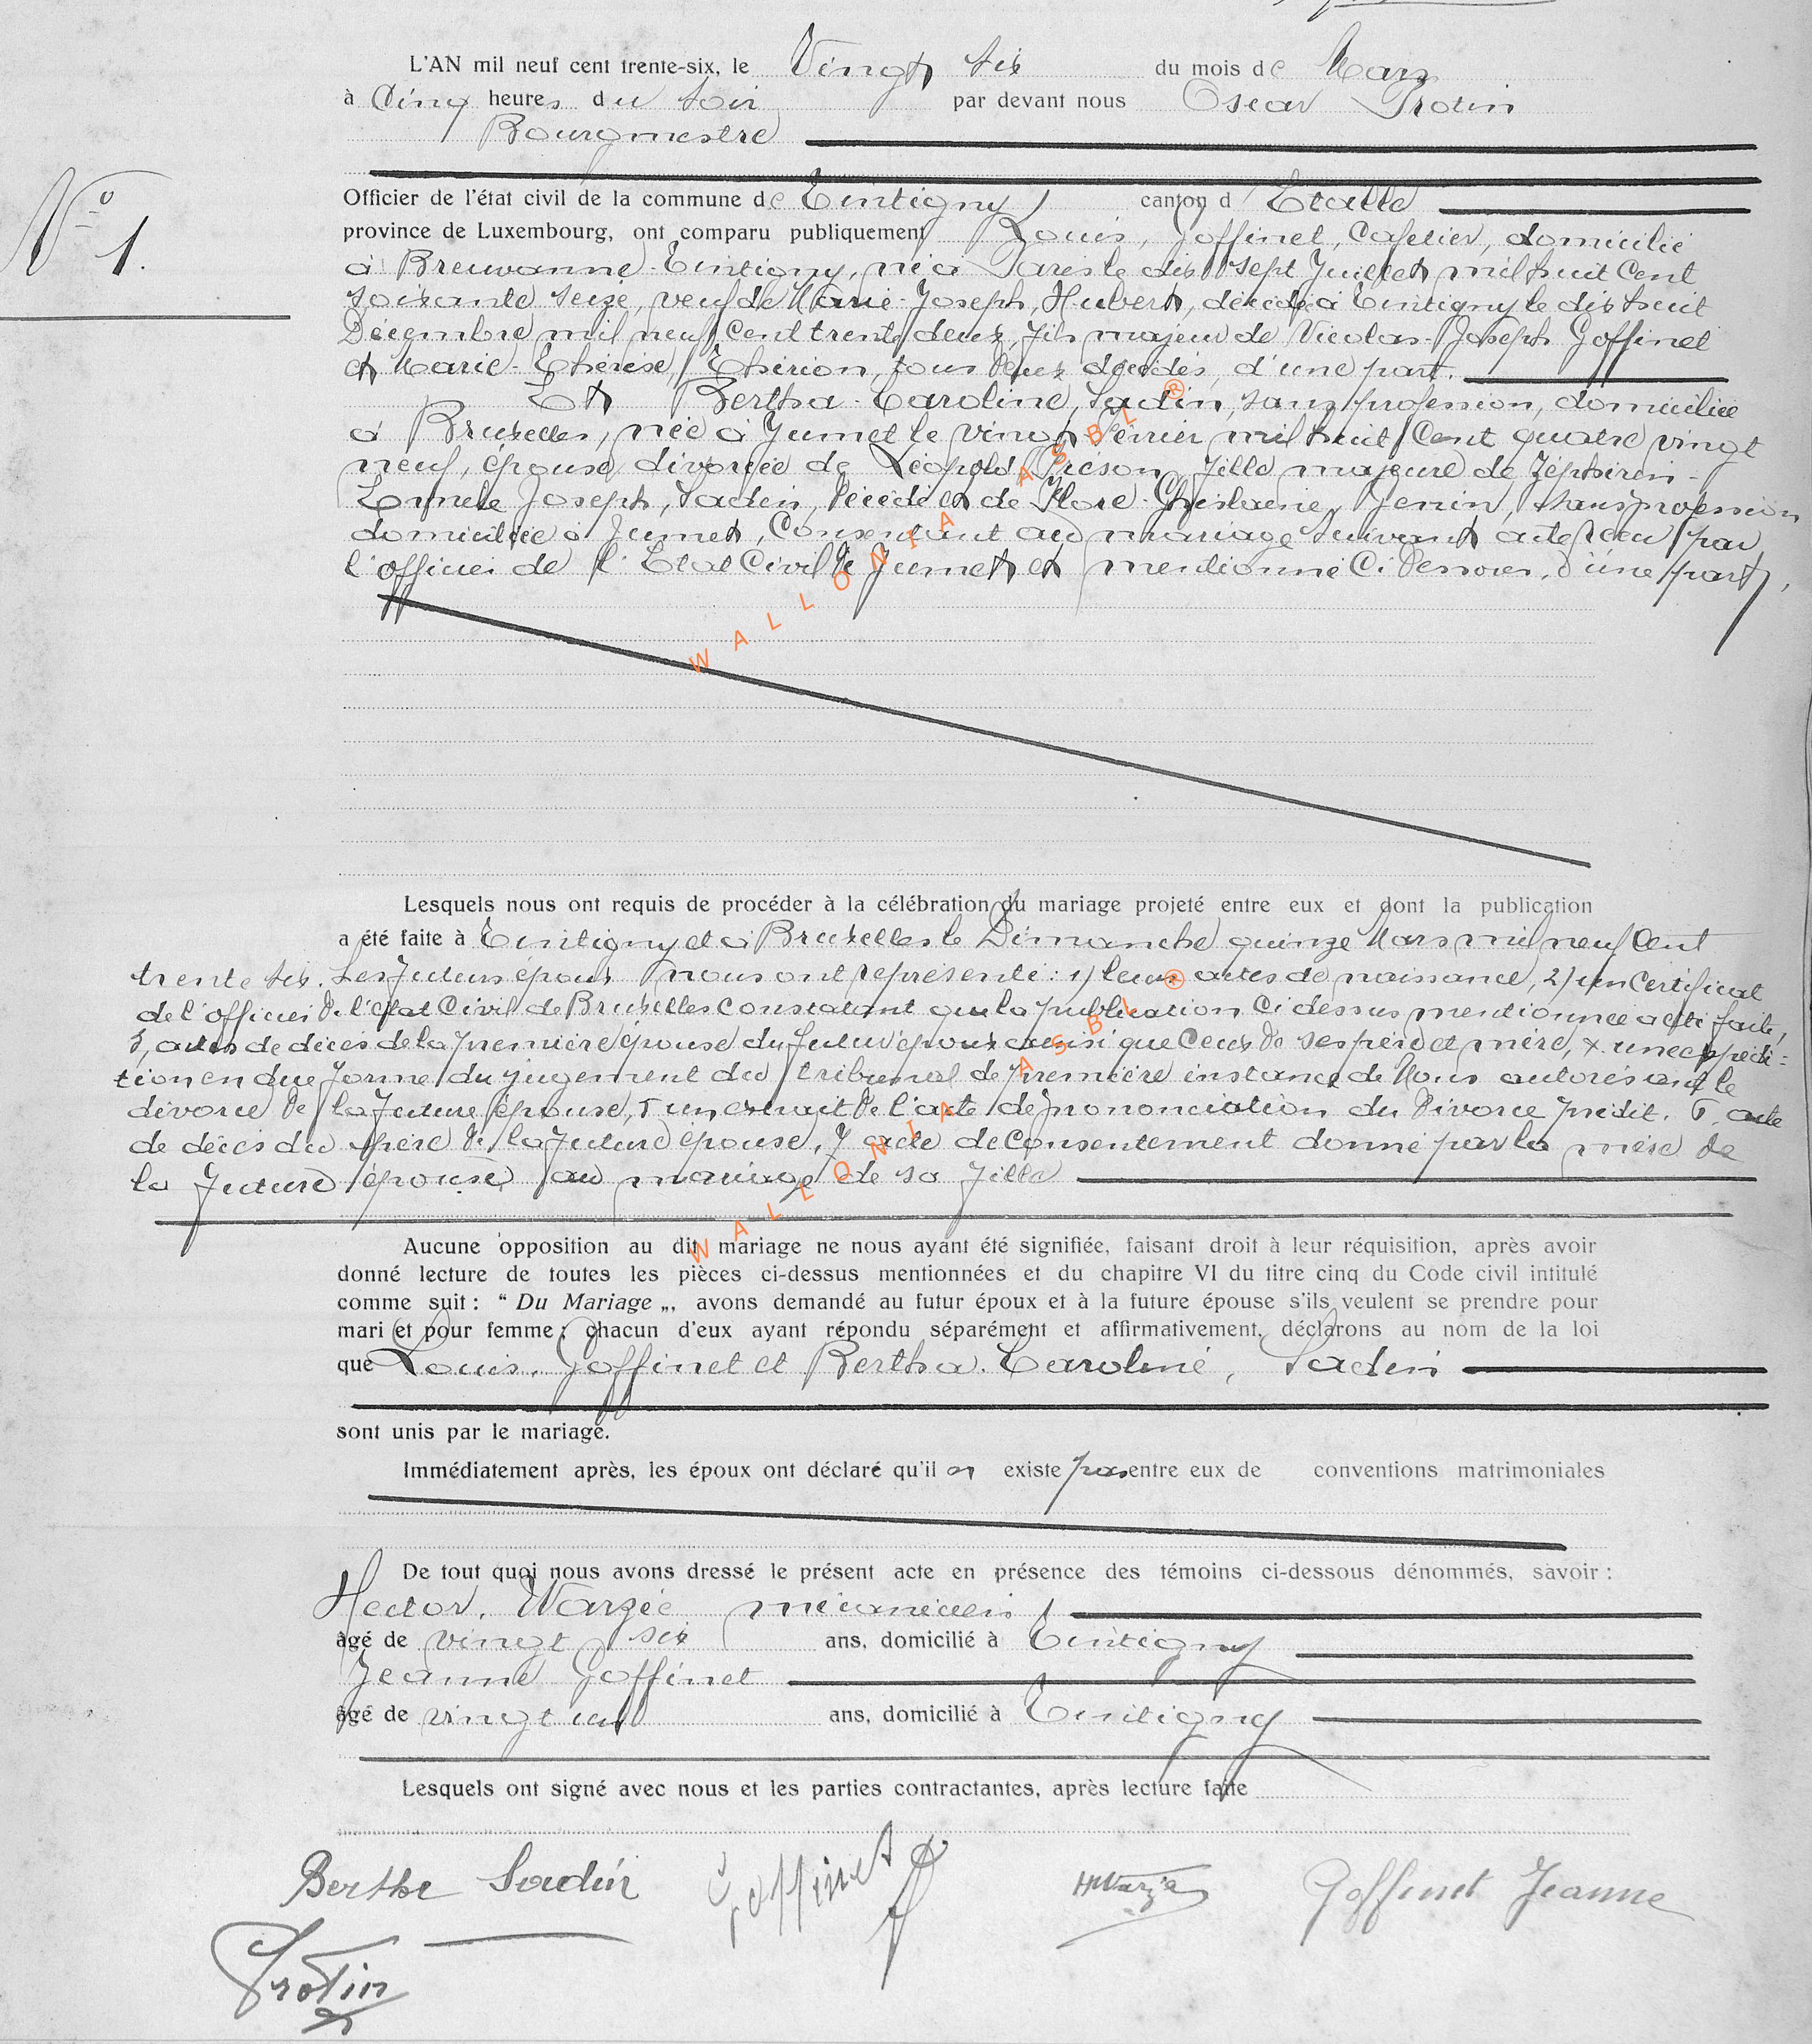 L'AN mil neuf cent trente-six, le Vingt six du mois de Mars
à Cinq heures du soir par devant nous Oscar Protin
Bourgmestre
N° 1.
Officier de l'état civil de la commune de Tintigny canton d Etalle
province de Luxembourg, ont comparu publiquement Louis, Goffinet, Cafetier, domicilié
à Breuvanne-Tintigny, né à Paris le dix sept Juillet mil huit Cent
soixante seize, veuf de Marie-Joseph, Hubert, décédé à Tintigny le dix huit
Décembre mil neuf cent trente deux, fils majeur de Nicolas-Joseph Goffinet
et Marie-Thérèse, Thirion, tous deux décédés, d'une part.
Et Bertha-Caroline, Sadin, sans profession, domiciliée
à Bruxelles, née à Jumet le vingt Février mil huit Cent quatre vingt
neuf, épouse divorcée de Léopold, fille majeure de Zéphirin-
Joseph, Sadin, décédé et de Flore-Ghislaine, Genin, sans profession
domiciliée à Jumet, Consentant au mariage suivant acte reçu par
l'officier de l'Etat Civil de Jumet et mentionné Ci dessous, d'une part,
Lesquels nous ont requis de procéder à la célébration du mariage projeté entre eux et dont la publication
a été faite à Tintigny et à Bruxelles le Dimanche quinze Mars mil neuf Cent
trente six. Les futurs époux nous ont représenté : 1) leurs actes de naissance, 2) un Certificat
de l'officier de l'état Civil de Bruxelles constatant que la publication Ci dessus mentionnée a été faite,
3, actes de décès de la première épouse du futur époux ainsi que Ceux de ses père et mère, 4. une expédi-
tion en due forme du jugement du tribunal de première instance de Mons autorisant le
divorce de la future épouse, 5 un extrait de l'acte de prononciation du divorce prédit. 6. acte
de décès du père de la future épouse, 7 acte de Consentement donné par la mère de
la future épouse au mariage de sa fille
Aucune opposition au dit mariage ne nous ayant été signifiée, faisant droit à leur réquisition, après avoir
donné lecture de toutes les pièces ci-dessus mentionnées et du chapitre VI du titre cinq du Code civil intitulé
comme suit : “ Du Mariage „, avons demandé au futur époux et à la future épouse s'ils veulent se prendre pour
mari et pour femme ; chacun d'eux ayant répondu séparément et affirmativement, déclarons au nom de la loi
que Louis, Goffinet et Bertha-Caroline, Sadin
sont unis par le mariage.
Immédiatement après, les époux ont déclaré qu'il n existe pas entre eux de conventions matrimoniales
De tout quoi nous avons dressé le présent acte en présence des témoins ci-dessous dénommés, savoir :
Hector, Warzée mécanicien
âgé de vingt six ans, domicilié à Tintigny
Jeanne Goffinet
âgé de vingt un ans, domicilié à Tintigny
Lesquels ont signé avec nous et les parties contractantes, après lecture faite
Berthe Sadin Goffinet HWarzée Goffinet Jeanne
Protin
WALLONIA ASBL ®
WALLONIA ASBL ®